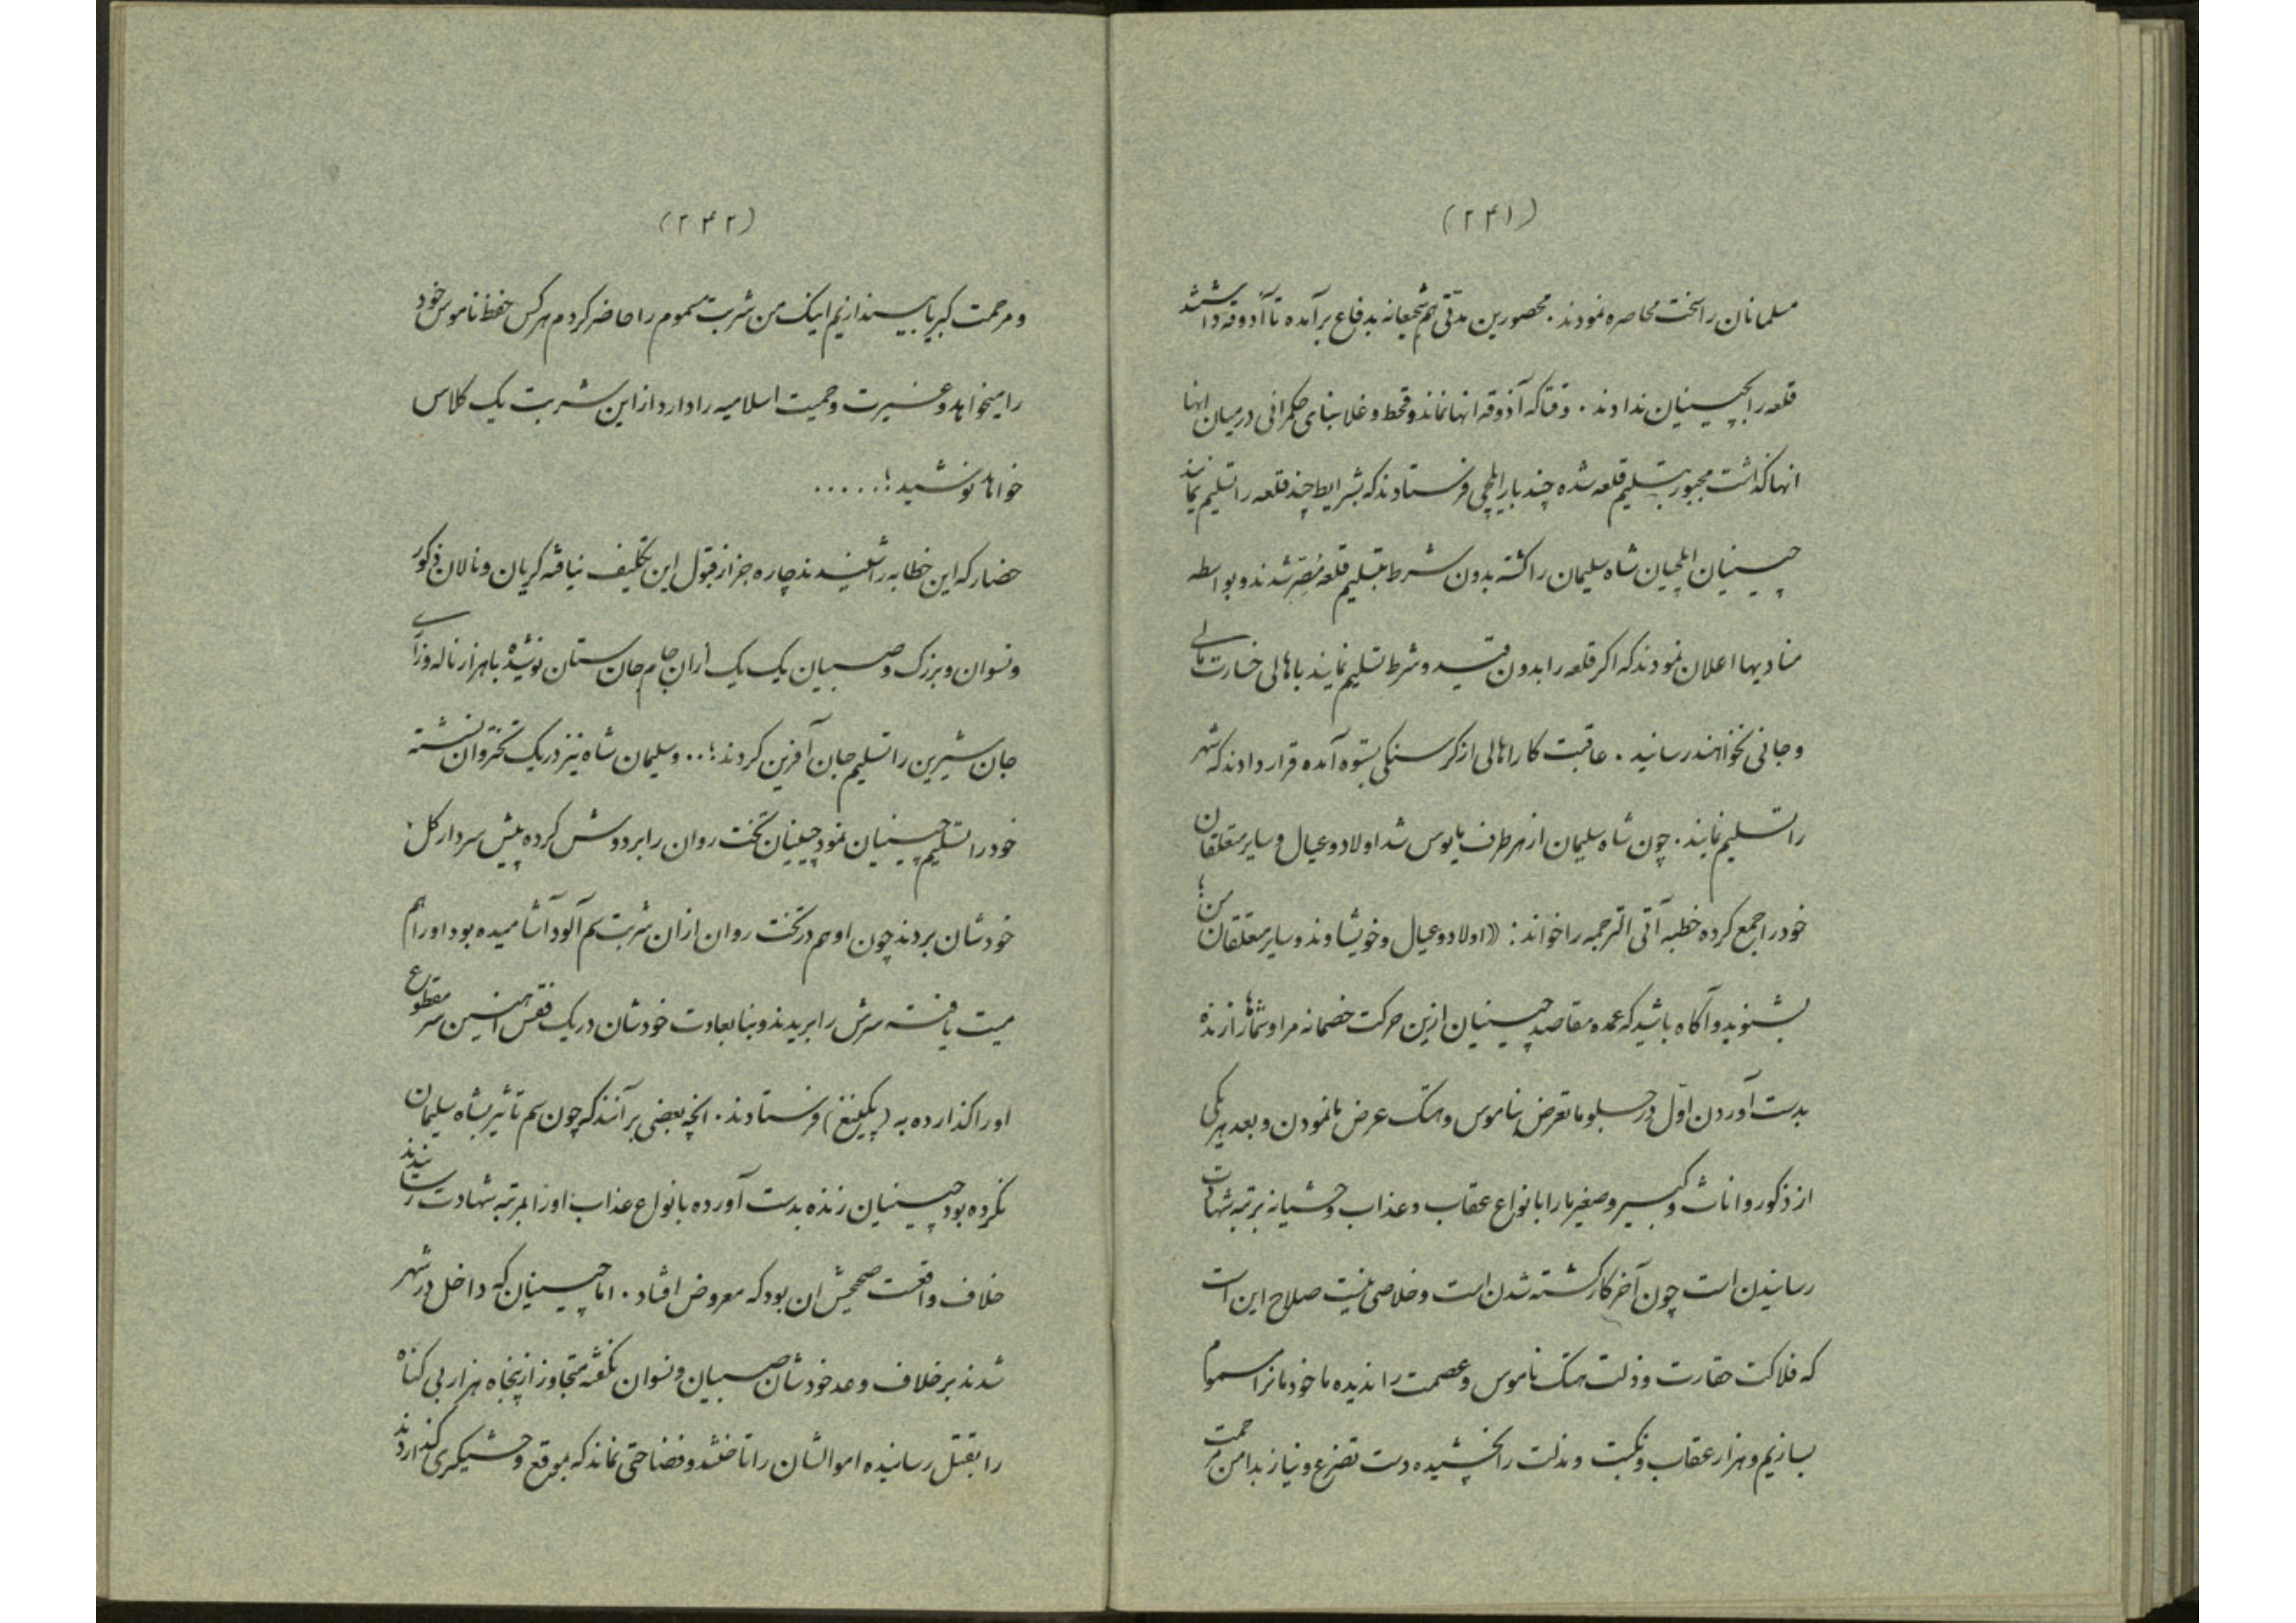 (۲۴۱)
مسلمانان را سخت محاصره نمودند . محصورین مدتی هم شجیعانه بدفاع برآمده تا آذوقه داشتند
قلعه را بچینیان ندادند . وقتاکه آذوقه انها نماند و قحط و غلا بنای حکمرانی در میان انها
انها گذاشت مجبور بتسلیم قلعه شده چند بار ایلچی فرستادند که بشرایط چند قلعه را تسلیم نمایند
چینیان ایلچیان شاه سلیمان را کشته بدون شرط بتسلیم قلعه مصر شدند و بواسطه
منادیها اعلان نمودند که اکر قلعه را بدون قید و شرط تسلیم نمایند باهالی خسارت مالی
و جانی نخواهند رسانید . عاقبت کار اهالی از کرسنکی بستوه آمده قرار دادند که شهر
را تسلیم نمایند . چون شاه سلیمان از هر طرف مایوس شد اولاد و عیال و سایر متعلقان
خود را جمع کرده خطبه آتی الترجمه را خواند : «اولاد و عیال و خویشاوند و سایر متعلقان من ؛
بشنوید و آکاه باشید که عمده مقاصد چینیان ازین حرکت خصمانه مرا و شماها را زنده
بدست آوردن اول در جلو ما تعرض بناموس و هتک عرض ما نمودن و بعد هر یکی
از ذکور و اناث و کبیر و صغیر ما را با نواع عقاب و عذاب وحشیانه برتبه شهادت
رسانیدن است چون آخر کار کشته شدن است و خلاصی نیست صلاح این است
که فلاکت حقارت و ذلت هتک ناموس و عصمت را ندیده ما خودمانرا مسموم
بسازیم و هزار عقاب و نکبت و مذلت را نچشیده دست تضرع و نیاز بدامن مرحمت
(۲۴۲)
و مرحمت کبریا بیندازیم اینک من شربت مسموم را حاضر کردم هر کس حفظ ناموس خود
را میخواهد و غیرت و حمیت اسلامیه را دارد از این شربت یک کلاس
خواهد نوشید ؛ . . . . .
حضار که این خطابه را شنیدند چاره جز از قبول این تکلیف نیافته کریان و نالان ذکور
و نسوان و بزرک و صبیان یک یک ازان جام جان ستان نوشیده باهزار ناله و زاری
جان شیرین را تسلیم جان آفرین کردند ؛ . . و سلیمان شاه نیز در یک تختروان نشسته
خود را تسلیم چینیان نمود چینیان تخت روان را بردوش کرده پیش سردار کل
خودشان بردند چون او هم در تخت روان ازان شربت سم آلود آشامیده بود اورا هم
میت یافته سرش را بریدند و بنا بعادت خودشان در یک قفس آهنین سر مقطوع
اورا کذارده به (پکینغ) فرستادند . انچه بعضی برآنند که چون سم تأثیر بشاه سلیمان
نکرده بود چینیان زنده بدست آورده بانواع عذاب اورا بمرتبه شهادت رسانیدند
خلاف واقعست صحیحش ان بود که معروض افتاد . اما چینیان که داخل در شهر
شدند برخلاف وعد خودشان صبیان و نسوان نکفته متجاوز از پنجاه هزار بی کناه
را بقتل رسانیده اموالشان را تاختند و فضاحتی نماند که بموقع وحشیکری نکذاردند